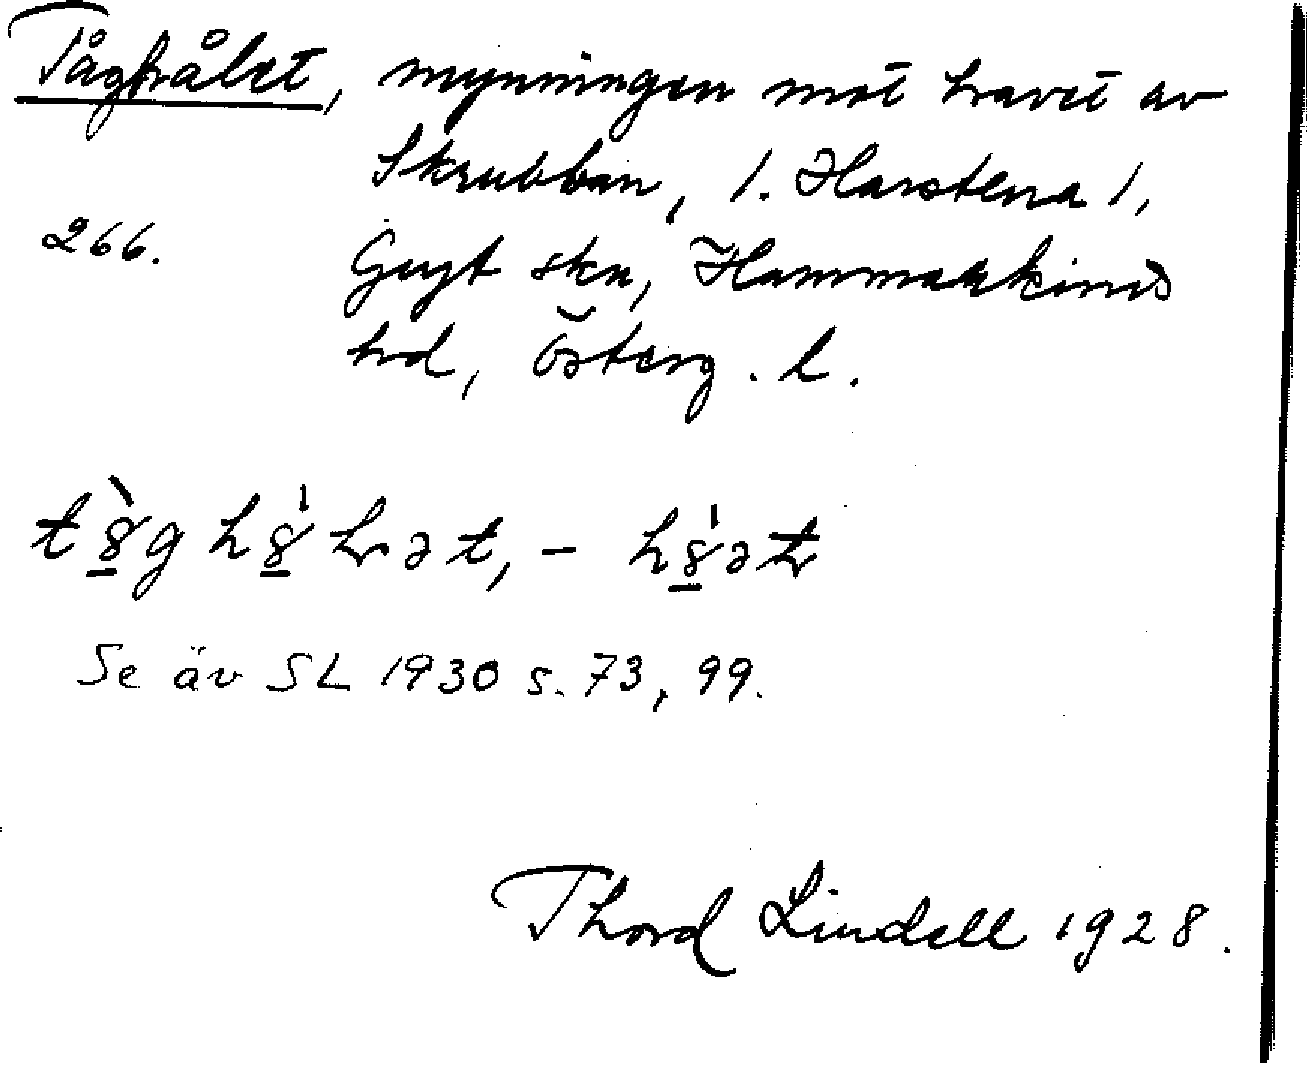 Tåghålet, mynningen mot havet av
Skrubban, l. Harstena 1,
266.
Gryt skn, Hammarkinds
hd, Österg. l.
Se äv SL 1930 s. 73, 99.
Thord Lindell 1928.